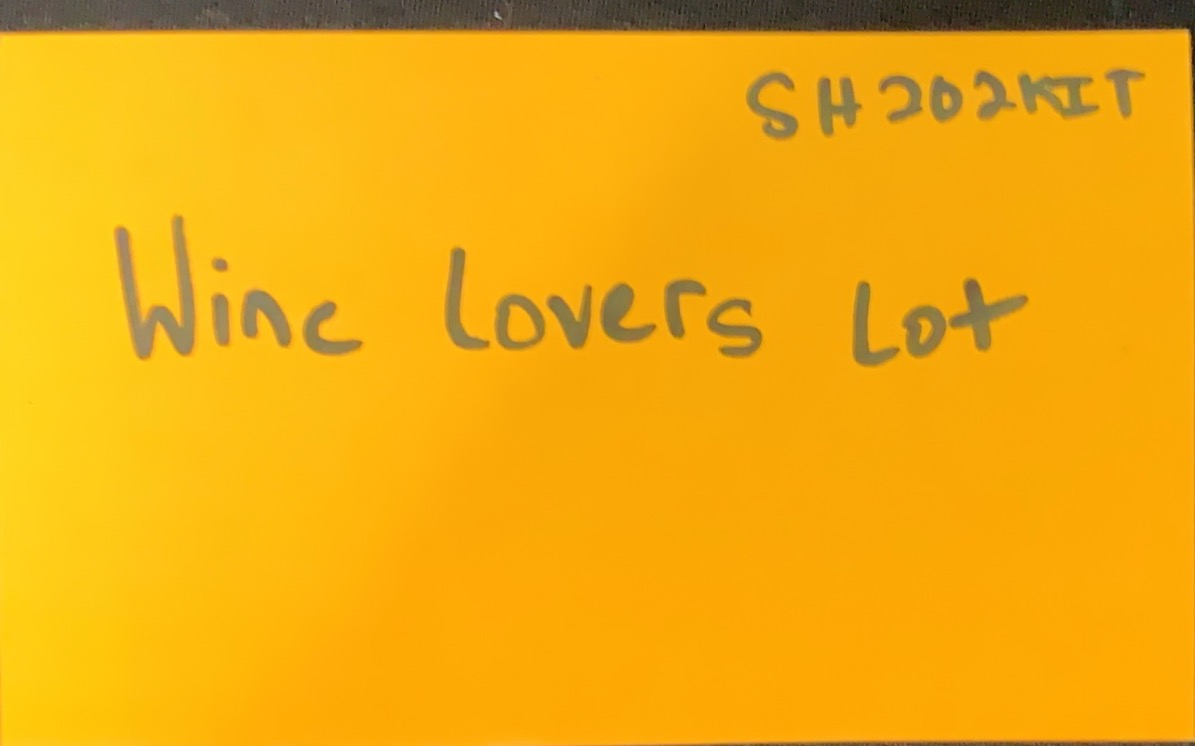 SH202KIT
Wine Lovers Lot